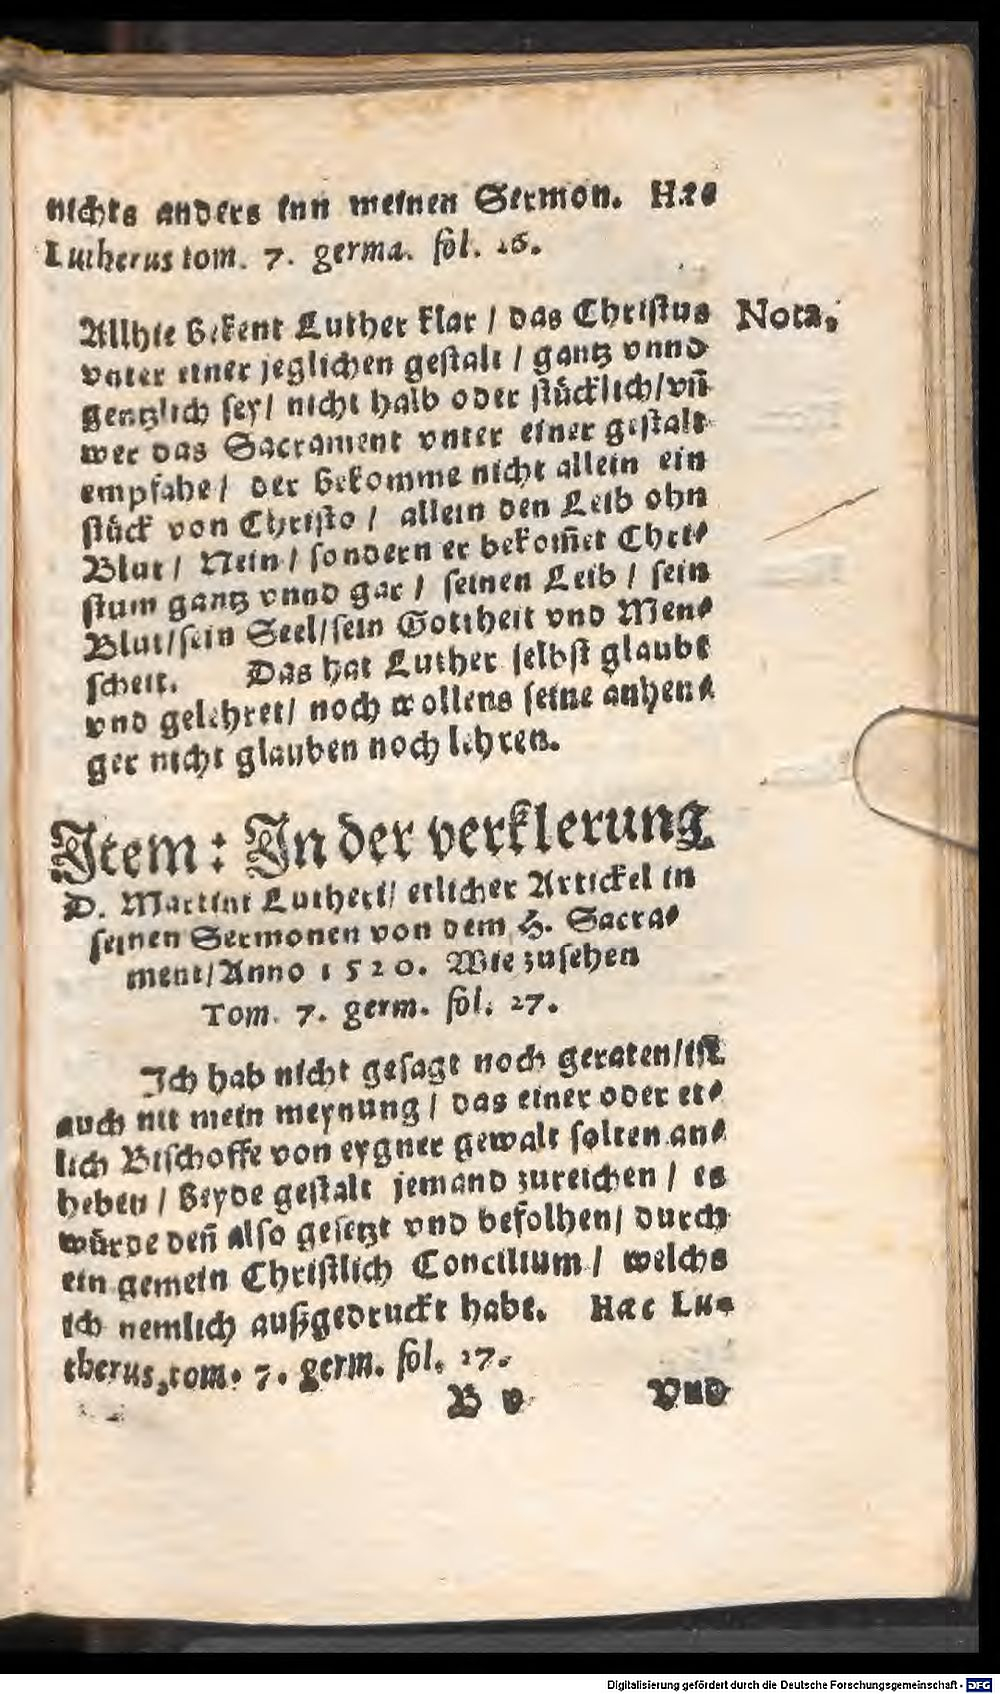 nichts anders inn meinen Sermon. Hæc
Lutherus tom. 7. germa. fol. 26.
Allhie bekent Luther klar / das Christus
Nota.
vnter einer jeglichen gestalt / gantz vnnd
gentzlich sey / nicht halb oder stücklich / vñ
wer das Sacrament vnter einer gestalt
empfahe / der bekomme nicht allein ein
stück von Christo / allein den Leib ohn
Blut / Nein / sondern er bekom̃et Chri-
stum gantz vnnd gar / seinen Leib / sein
Blut / sein Seel / sein Gottheit vnd Men-
scheit. Das hat Luther selbst glaubt
vnd gelehret / noch wollens seine anhen-
ger nicht glauben noch lehren.
Item: In der verklerung
D. Martini Lutheri / etlicher Artickel in
seinen Sermonen von dem H. Sacra-
ment / Anno 1520. Wie zusehen
Tom. 7. germ. fol. 27.
Ich hab nicht gesagt noch geraten / ist
auch nit mein meynung / das einer oder et-
lich Bischoffe von eygner gewalt solten an-
heben / beyde gestalt jemand zureichen / es
würde deñ also gesetzt vnd befolhen / durch
ein gemein Christlich Concilium / welchs
ich nemlich außgedruckt habe. Hæc Lu-
therus, tom. 7. germ. fol. 27.
B v
Vnd
Digitalisierung gefördert durch die Deutsche Forschungsgemeinschaft - DFG